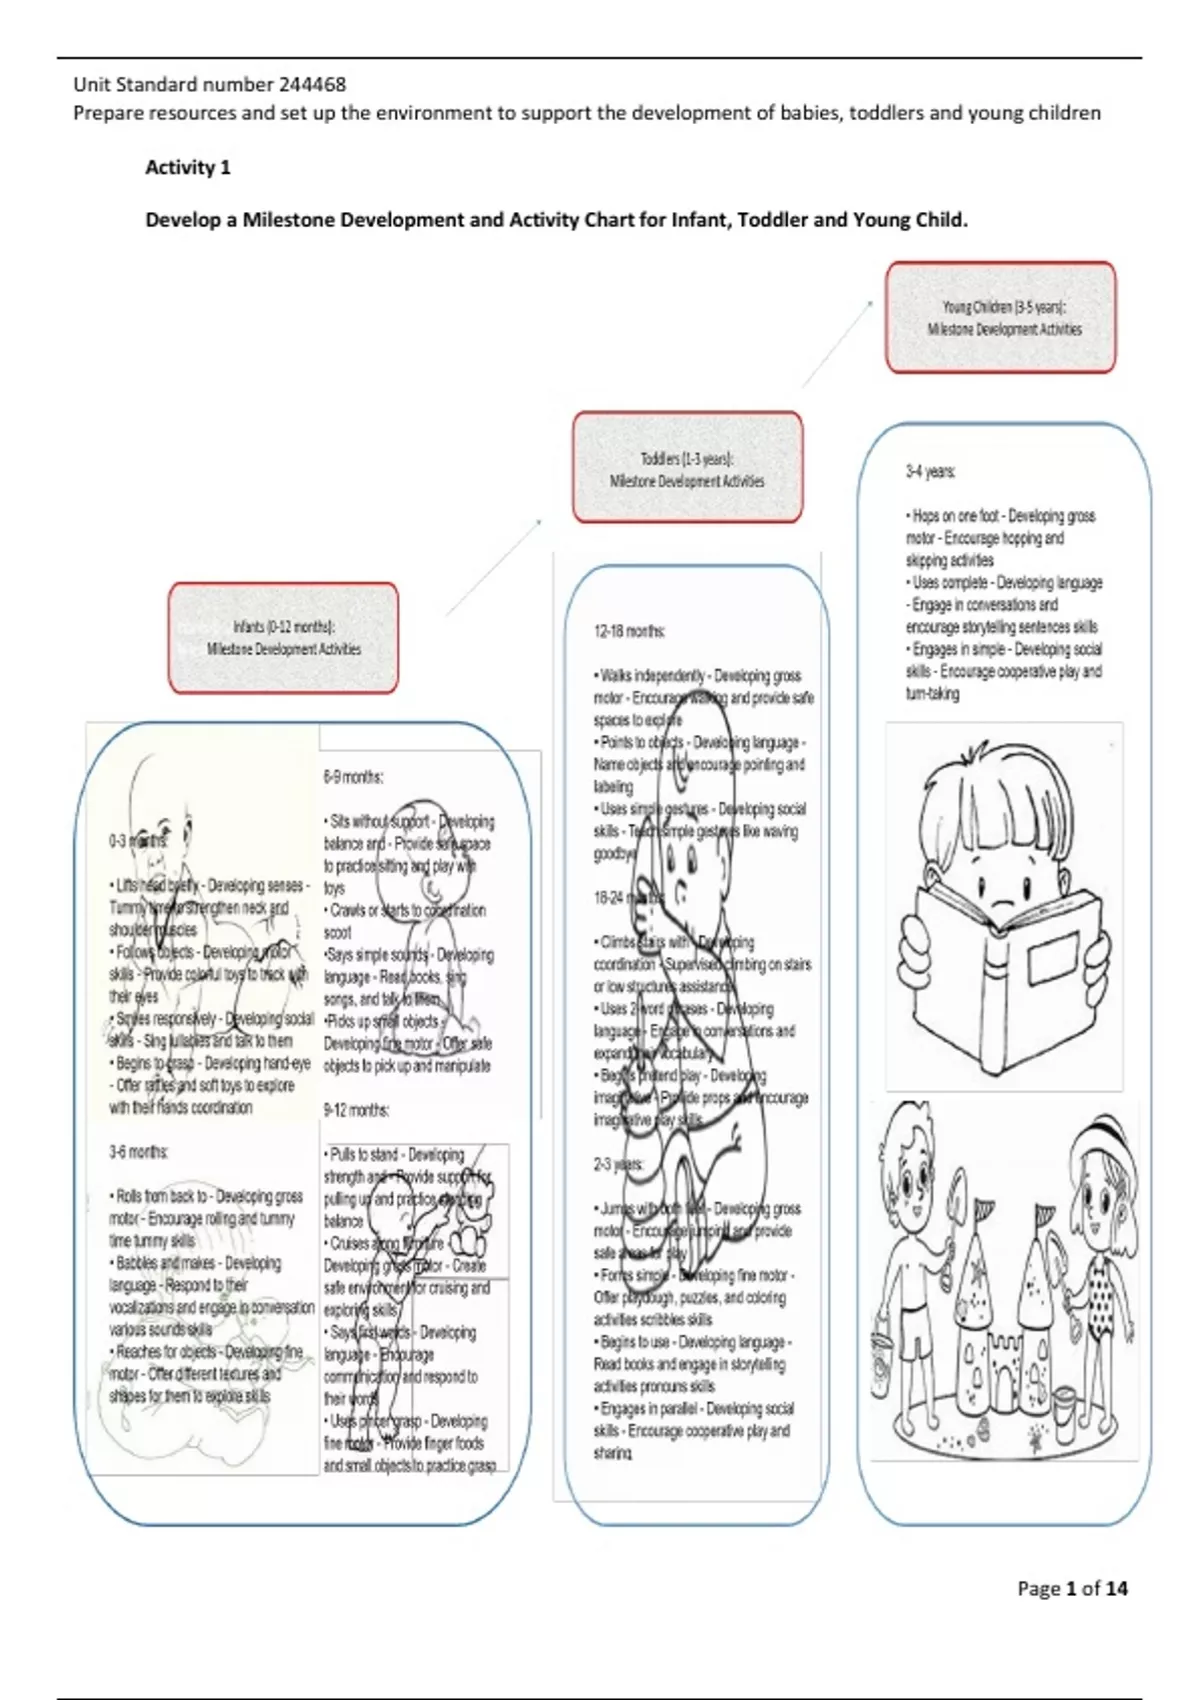 Unit Standard number 244468
Prepare resources and set up the environment to support the development of babies, toddlers and young children
Activity 1
Develop a Milestone Development and Activity Chart for Infant, Toddler and Young Child.
Infants (0-12 months):
Milestone Development Activities
0-3 months:
• Lifts head briefly - Developing senses -
Tummy time to strengthen neck and
shoulder muscles
• Follows objects - Developing motor
skills - Provide colorful toys to track with
their eyes
• Smiles responsively - Developing social
skills - Sing lullabies and talk to them
• Begins to grasp - Developing hand-eye
- Offer rattles and soft toys to explore
with their hands coordination
3-6 months:
• Rolls from back to - Developing gross
motor - Encourage rolling and tummy
time tummy skills
• Babbles and makes - Developing
language - Respond to their
vocalizations and engage in conversation
various sounds skills
• Reaches for objects - Developing fine
motor - Offer different textures and
shapes for them to explore skills
6-9 months:
• Sits without support - Developing
balance and - Provide safe space
to practice sitting and play with
toys
• Crawls or starts to coordination
scoot
•Says simple sounds - Developing
language - Read books, sing
songs, and talk to them
•Picks up small objects -
Developing fine motor - Offer safe
objects to pick up and manipulate
9-12 months:
• Pulls to stand - Developing
strength and - Provide support for
pulling up and practice standing
balance
• Cruises along furniture -
Developing gross motor - Create
safe environment for cruising and
exploring skills
• Says first words - Developing
language - Encourage
communication and respond to
their words
• Uses pincer grasp - Developing
fine motor - Provide finger foods
and small objects to practice grasp
Toddlers (1-3 years):
Milestone Development Activities
12-18 months:
• Walks independently - Developing gross
motor - Encourage walking and provide safe
spaces to explore
• Points to objects - Developing language -
Name objects and encourage pointing and
labeling
• Uses simple gestures - Developing social
skills - Teach simple gestures like waving
goodbye
18-24 months:
• Climbs stairs with - Developing
coordination - Supervised climbing on stairs
or low structures assistance
• Uses 2-word phrases - Developing
language - Engage in conversations and
expand their vocabulary
• Begins pretend play - Developing
imaginative - Provide props and encourage
imaginative play skills
2-3 years:
• Jumps with both feet - Developing gross
motor - Encourage jumping and provide
safe areas for play
• Forms simple - Developing fine motor -
Offer playdough, puzzles, and coloring
activities scribbles skills
• Begins to use - Developing language -
Read books and engage in storytelling
activities pronouns skills
• Engages in parallel - Developing social
skills - Encourage cooperative play and
sharing
Young Children (3-5 years):
Milestone Development Activities
3-4 years:
• Hops on one foot - Developing gross
motor - Encourage hopping and
skipping activities
• Uses complete - Developing language
- Engage in conversations and
encourage storytelling sentences skills
• Engages in simple - Developing social
skills - Encourage cooperative play and
turn-taking
Page 1 of 14